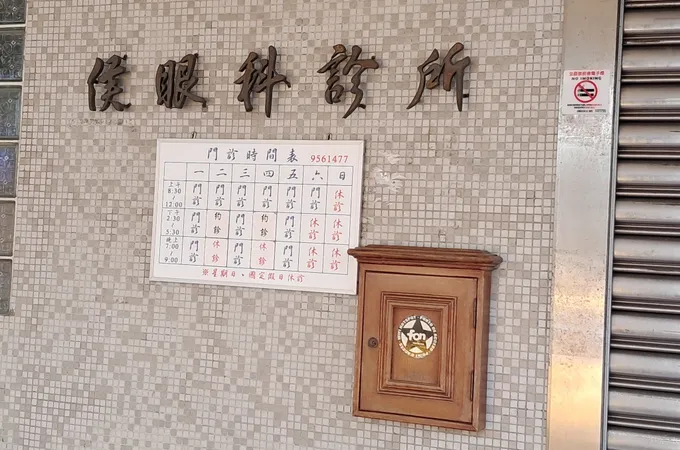 侯眼科診所
門診時間表 9561477
一 二 三 四 五 六 日
上午 8:30 / 12:00 門診 門診 門診 門診 門診 門診 休診
下午 2:30 / 5:30 門診 約診 門診 約診 門診 休診 休診
晚上 7:00 / 9:00 門診 休診 門診 休診 門診 休診 休診
※星期日·國定假日休診
fon